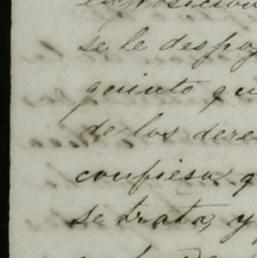 se le despo
quinto qu
de los dere
confiesa q
se trata, y